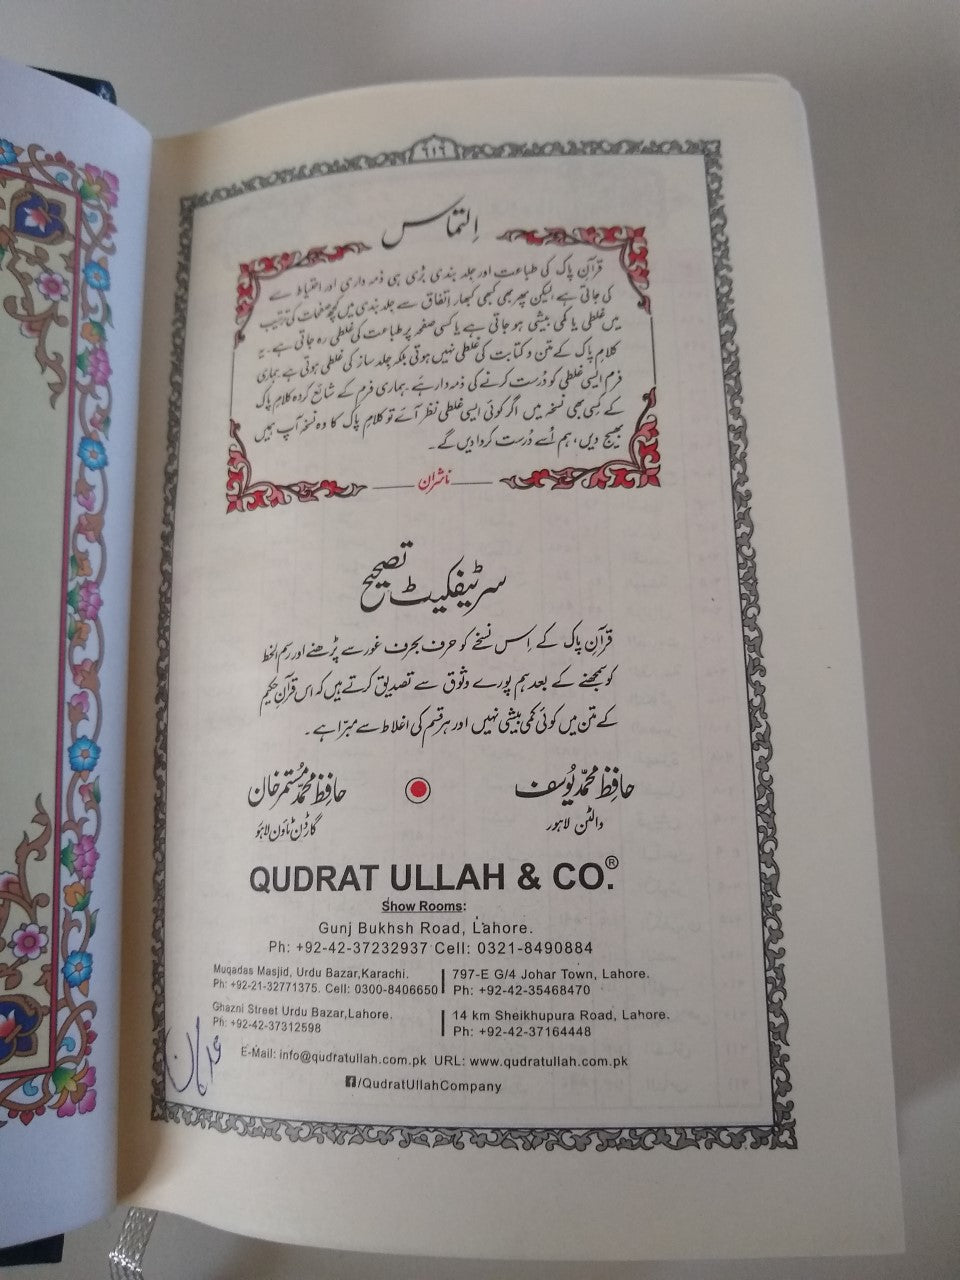 ۶۱۶
اِلتماس
قرآنِ پاک کی طباعت اور جلد بندی بڑی ہی ذمہ داری اور احتیاط سے
کی جاتی ہے لیکن پھر بھی کبھی کبھار اتفاق سے جلد بندی میں کچھ صفحات کی ترتیب
میں غلطی یا کمی بیشی ہو جاتی ہے یا کسی صفحہ پر طباعت کی غلطی رہ جاتی ہے۔ یہ
کلامِ پاک کے متن و کتابت کی غلطی نہیں ہوتی بلکہ جلد ساز کی غلطی ہوتی ہے ہماری
فرم ایسی غلطی کو دُرست کرنے کی ذمہ دار ہے۔ ہماری فرم کے شائع کردہ کلامِ پاک
کے کِسی بھی نسخہ میں اگر کوئی ایسی غلطی نظر آئے تو کلامِ پاک کا وہ نسخہ آپ ہمیں
بھیج دیں، ہم اُسے دُرست کروا دیں گے۔
ناشران
سرٹیفکیٹ تصحیح
قرآنِ پاک کے اِس نسخے کو حرف بحرف غور سے پڑھنے اور رسم الخط
کو سمجھنے کے بعد ہم پورے وثوق سے تصدیق کرتے ہیں کہ اس قرآنِ حکیم
کے متن میں کوئی کمی بیشی نہیں اور ہر قسم کی اغلاط سے مبرّا ہے۔
حافظ محمّد یُوسف
حافظ محمّد مُستمر خان
والٹن لاہور
گارڈن ٹاؤن لاہور
QUDRAT ULLAH & CO.®
Show Rooms:
Gunj Bukhsh Road, Lahore.
Ph: +92-42-37232937 Cell: 0321-8490884
Muqadas Masjid, Urdu Bazar,Karachi.
Ph: +92-21-32771375. Cell: 0300-8406650
797-E G/4 Johar Town, Lahore.
Ph: +92-42-35468470
Ghazni Street Urdu Bazar,Lahore.
Ph: +92-42-37312598
14 km Sheikhupura Road, Lahore.
Ph: +92-42-37164448
E-Mail: info@qudratullah.com.pk URL: www.qudratullah.com.pk
f/QudratUllahCompany